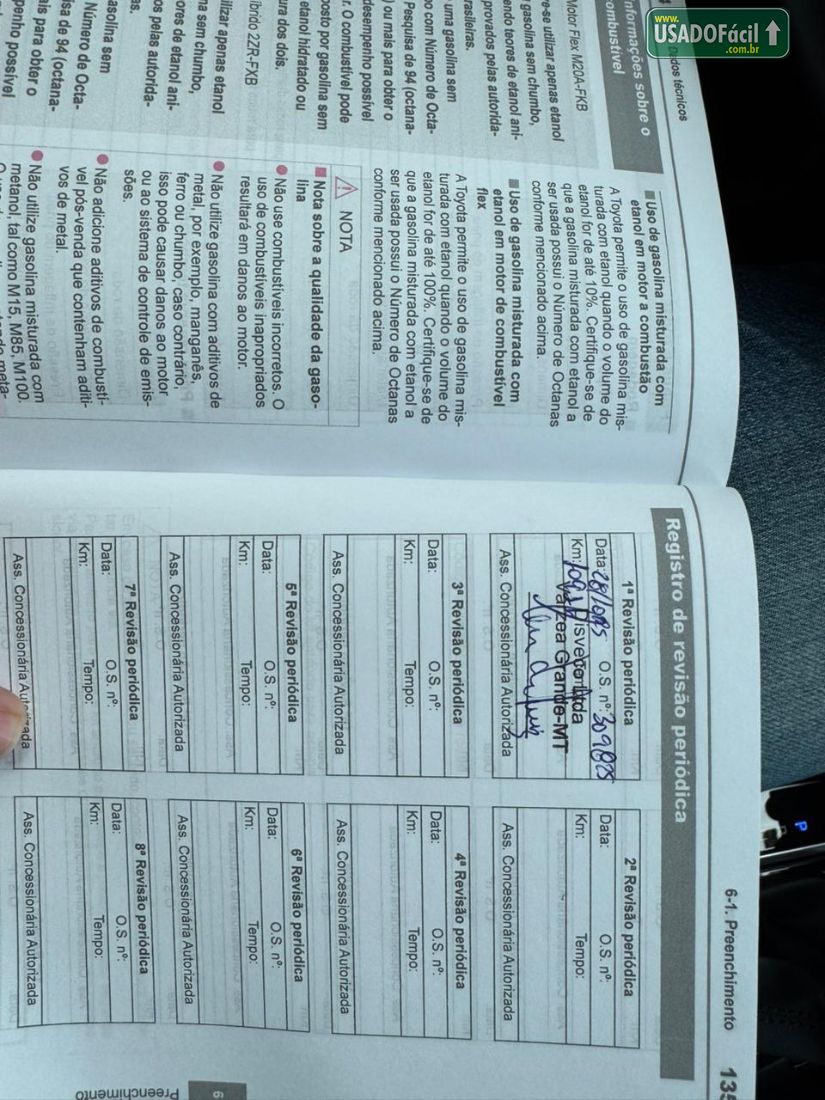 www.
USADOFácil
.com.br
Dados técnicos
Informações sobre o
combustível
Motor Flex M20A-FKB
re-se utilizar apenas etanol
r gasolina sem chumbo,
endo teores de etanol ani-
provados pelas autorida-
rasileiras.
uma gasolina sem
bo com Número de Octa-
Pesquisa de 94 (octana-
) ou mais para obter o
desempenho possível
r. O combustível pode
posto por gasolina sem
etanol hidratado ou
ura dos dois.
íbrido 2ZR-FXB
ilizar apenas etanol
na sem chumbo,
ores de etanol ani-
os pelas autorida-
as.
asolina sem
Número de Octa-
isa de 94 (octana-
ais para obter o
penho possível
■ Uso de gasolina misturada com
etanol em motor a combustão
A Toyota permite o uso de gasolina mis-
turada com etanol quando o volume do
etanol for de até 10%. Certifique-se de
que a gasolina misturada com etanol a
ser usada possui o Número de Octanas
conforme mencionado acima.
■ Uso de gasolina misturada com
etanol em motor de combustível
flex
A Toyota permite o uso de gasolina mis-
turada com etanol quando o volume do
etanol for de até 100%. Certifique-se de
que a gasolina misturada com etanol a
ser usada possui o Número de Octanas
conforme mencionado acima.
NOTA
■ Nota sobre a qualidade da gaso-
lina
● Não use combustíveis incorretos. O
uso de combustíveis inapropriados
resultará em danos ao motor.
● Não utilize gasolina com aditivos de
metal, por exemplo, manganês,
ferro ou chumbo, caso contrário,
isso pode causar danos ao motor
ou ao sistema de controle de emis-
sões.
● Não adicione aditivos de combustí-
vel pós-venda que contenham aditi-
vos de metal.
● Não utilize gasolina misturada com
metanol, tal como M15, M85, M100.
6-1. Preenchimento
135
Registro de revisão periódica
1ª Revisão periódica
Data: O.S. nº: 309895
Km:
Disveco Ltda
Várzea Grande-MT
Ass. Concessionária Autorizada
2ª Revisão periódica
Data: O.S. nº:
Km: Tempo:
Ass. Concessionária Autorizada
3ª Revisão periódica
Data: O.S. nº:
Km: Tempo:
Ass. Concessionária Autorizada
4ª Revisão periódica
Data: O.S. nº:
Km: Tempo:
Ass. Concessionária Autorizada
5ª Revisão periódica
Data: O.S. nº:
Km: Tempo:
Ass. Concessionária Autorizada
6ª Revisão periódica
Data: O.S. nº:
Km: Tempo:
Ass. Concessionária Autorizada
7ª Revisão periódica
Data: O.S. nº:
Km: Tempo:
Ass. Concessionária Autorizada
8ª Revisão periódica
Data: O.S. nº:
Km: Tempo:
Ass. Concessionária Autorizada
6
Preenchimento
P